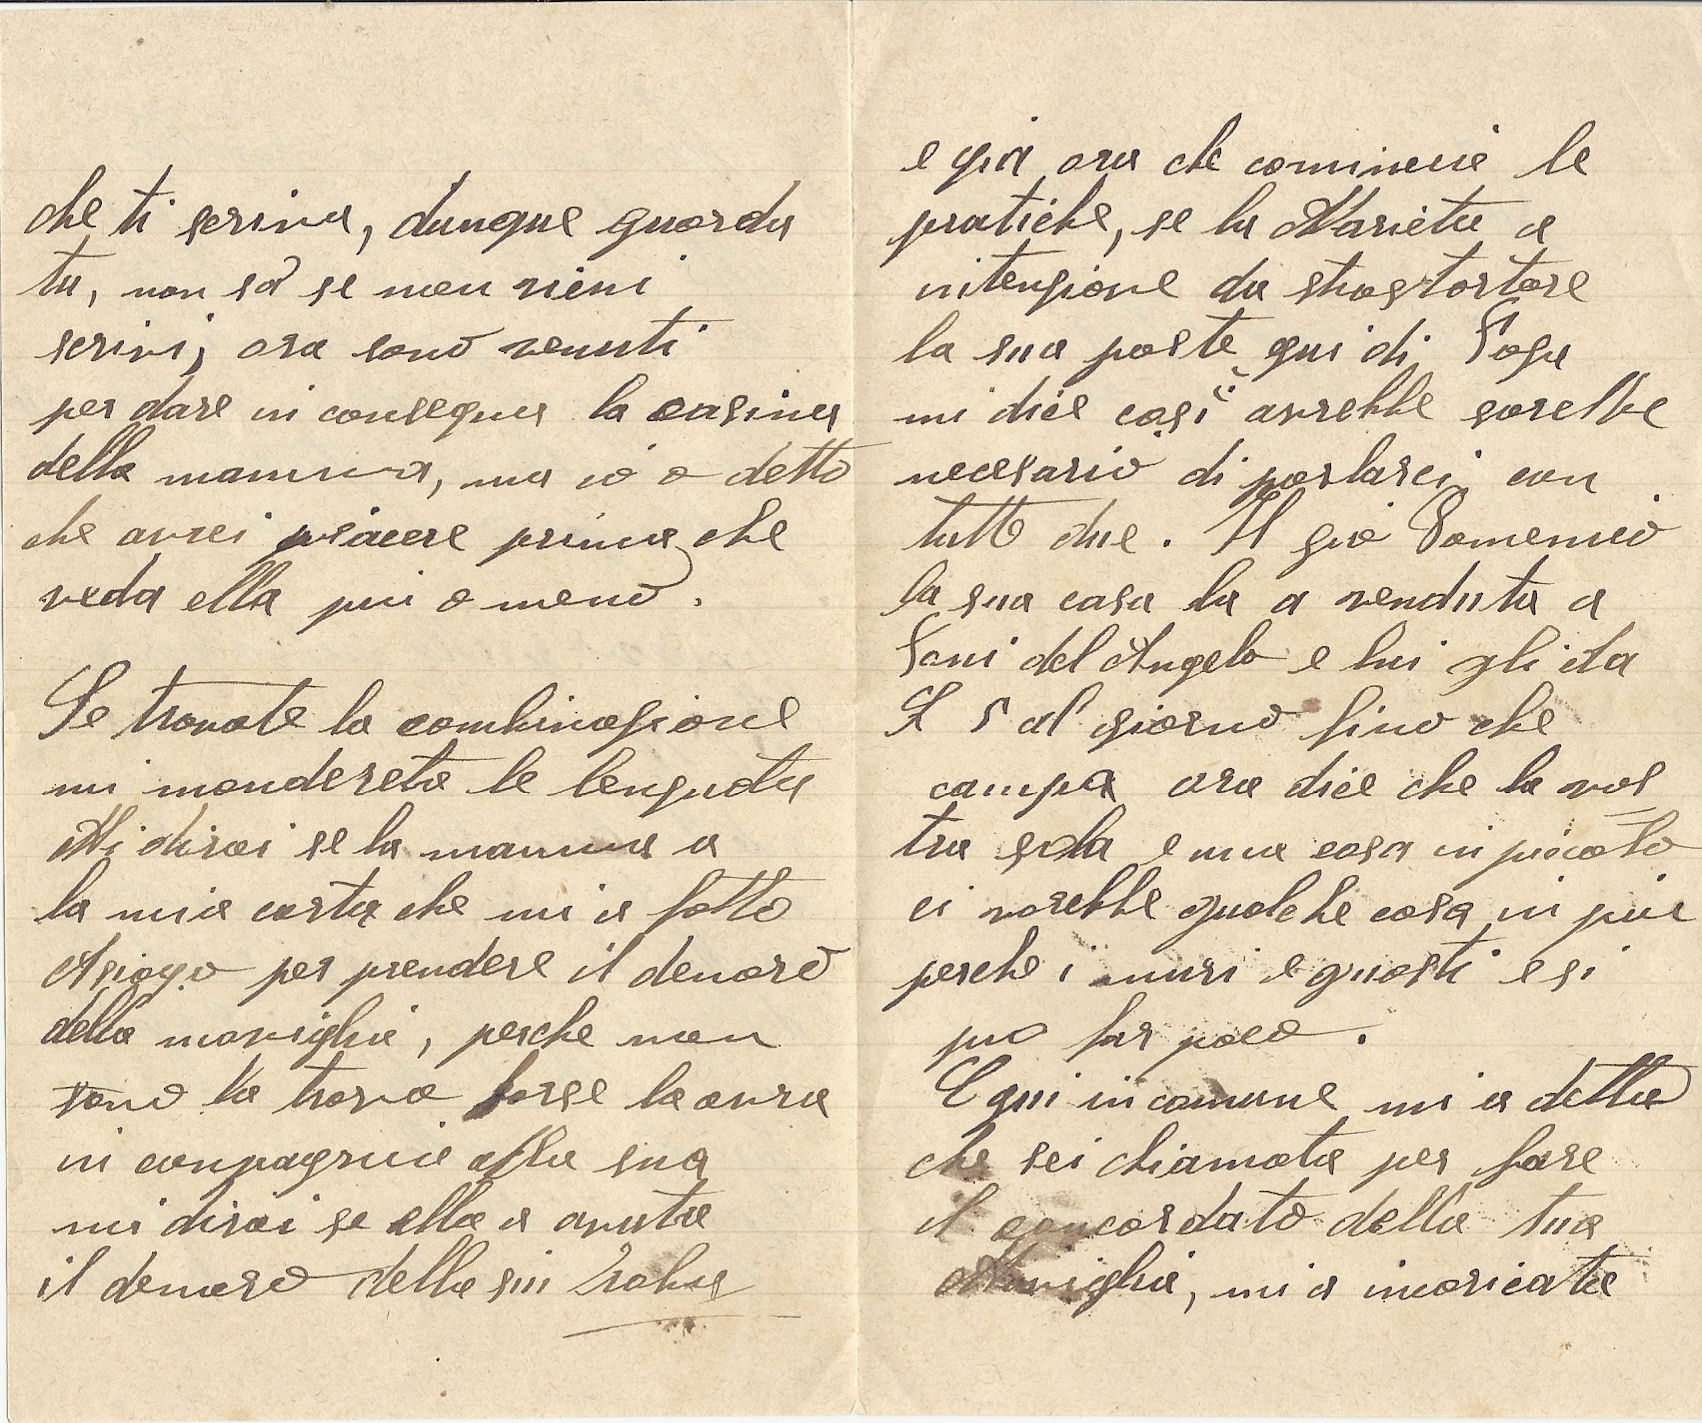 che ti scriva, dunque guarda
tu, non sò se non vieni
scrivi, ora sono venuti
per dare in consegna la casina
della mamma, ma io o detto
che avrei piacere prima che
veda ella piu o meno.
Se trovate la combinasione
mi manderete le lenguata
Mi dirai se la mamma a
la mia carta che mi a fatto
Asiago per prendere il denaro
della maniglia, perche non
sono la trova forse la avra
in conpagnia alla sua
mi dirai se ella a avuta
il denaro della sii
e già ora che comincia le
pratiche, se la Marieta a
intensione da strastortare
la sua parte qui di
mi dice così avrebbe sarebbe
necesario di parlarci con
tutto due. Il gio Domenico
la sua casa la a venduta a
Toni del Angelo e lui gli da
L 5 al giorno fino che
campa ora dice che la vos
tra sola e una casa in picolo
ci vorebbe qualche cosa in piu
perche i muri e guasti e si
puo far poco.
E qui in comune mi a detto
che sei chiamata per fare
il concordato della tua
Maniglia, mi a incaricata